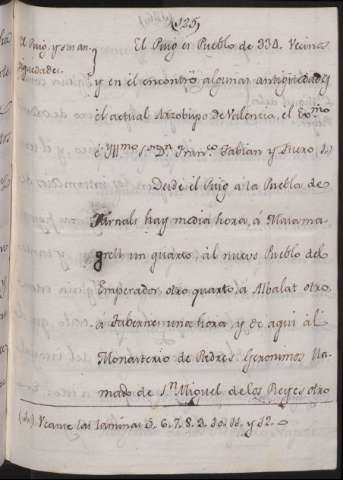 125
El Puig y sus an
tiguedades.
El Puig es Pueblo de 334. Vecinos
y en el encontró algunas antigüedades
el actual Arzobispo de Valencia, el Ex.mo
é Yll.mo S.or D.n Fran.co Fabian y Fuero
Desde el Puig a la Puebla de
Farnals hay media hora, á Masama-
grell un quarto, ál nuevo Pueblo del
Emperador otro quarto, á Albalat otro,
á Tabernes una hora, y de aqui ál
Monasterio de Padres Geronimos lla-
mado de S.n Miguel de los Reyes otro
Veanse las laminas 5. 6. 7. 8. 9. 10. 11. y 12.